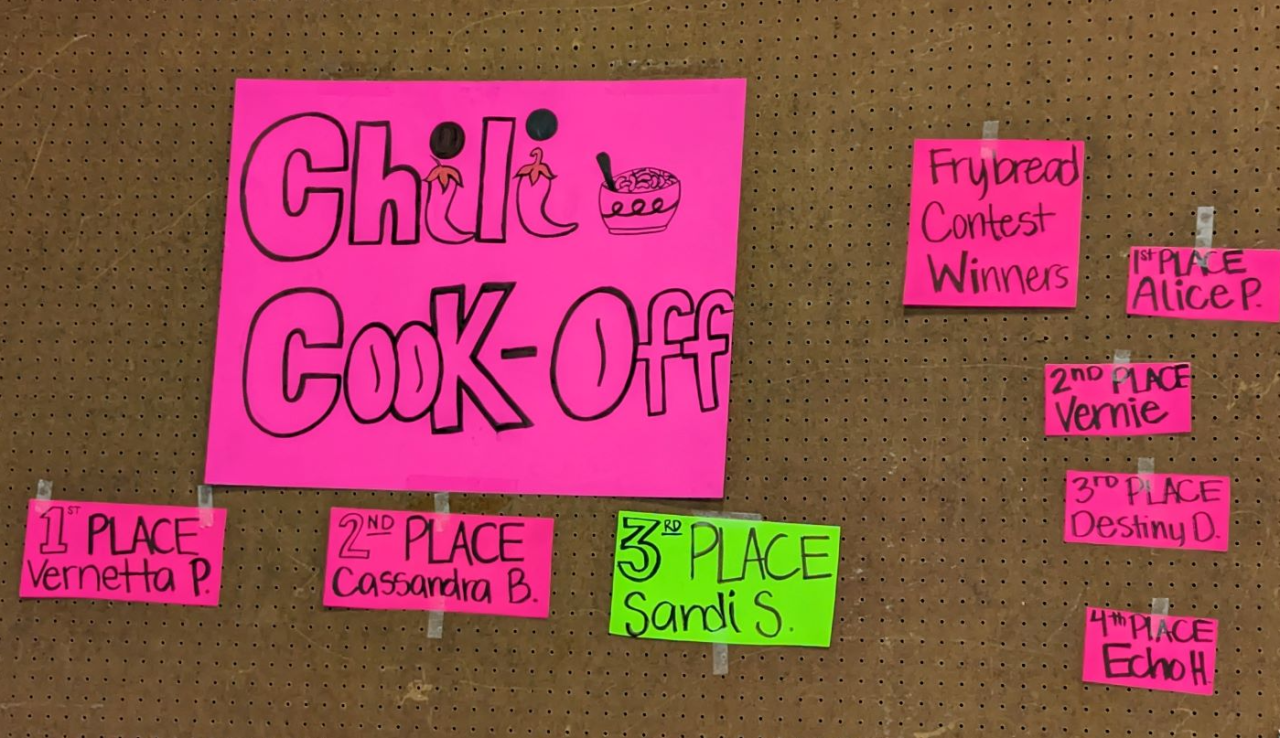 Chili
Cook-Off
1ST PLACE
Vernetta P.
2ND PLACE
Cassandra B.
3RD PLACE
Sandi S.
Frybread
Contest
Winners
1st PLACE
Alice P.
2ND PLACE
Vernie
3rd PLACE
Destiny D.
4th PLACE
Echo H